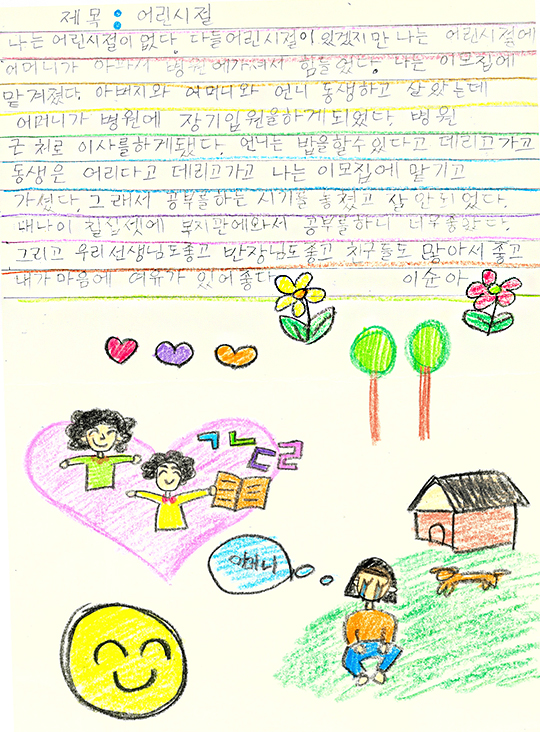 제목: 어린시절
나는 어린시절이 없다. 다들어린시절이 있겠지만 나는 어린시절에
어머니가 아파서 병원에가셔서 힘들었다. 나는 이모집에
맡겨졌다. 아버지와 어머니와 언니 동생하고 살았는데
어머니가 병원에 장기입원을하게되었다. 병원
근처로 이사를하게됐다. 언니는 밥을할수있다고 데리고가고
동생은 어리다고 데리고가고 나는 이모집에 맡기고
가셨다. 그래서 공부를하는 시기를 놓쳤고 삶 안되었다.
내나이 칠십셋에 복지관에와서 공부를하니 너무좋았다.
그리고 우리선생님도좋고 반장님도좋고 친구들도 많아서 좋고
내가마음에 여유가 있어좋다 이순아
ㄱㄴㄷㄹ
어머니